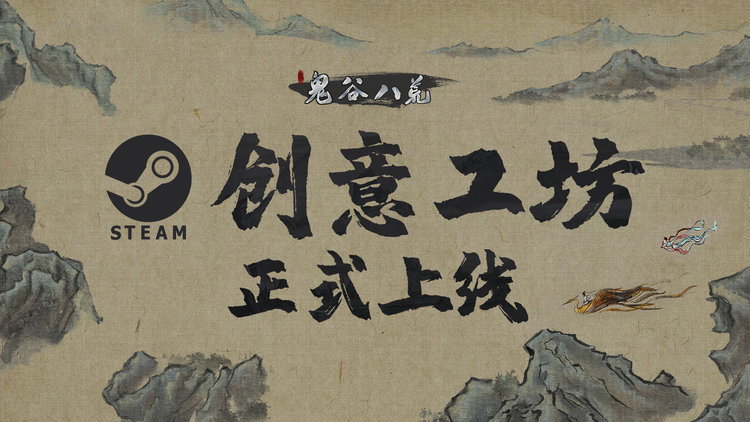 鬼谷八荒
创意工坊
STEAM
正式上线